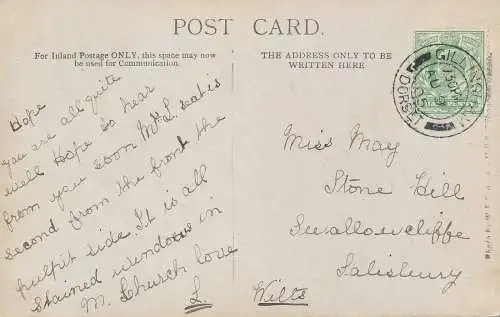 POST CARD.
For Inland Postage ONLY, this space may now
be used for Communication.
THE ADDRESS ONLY TO BE
WRITTEN HERE
Hope
you are all quite
well Hope to hear
from you soon Mrs L seat is
second from the front the
pulpit side. It is all
stained windows in
M. Church love
L.
Miss May
Stone Hill
Swallowcliffe
Salisbury
Wilts
GILLINGHAM
DORSET